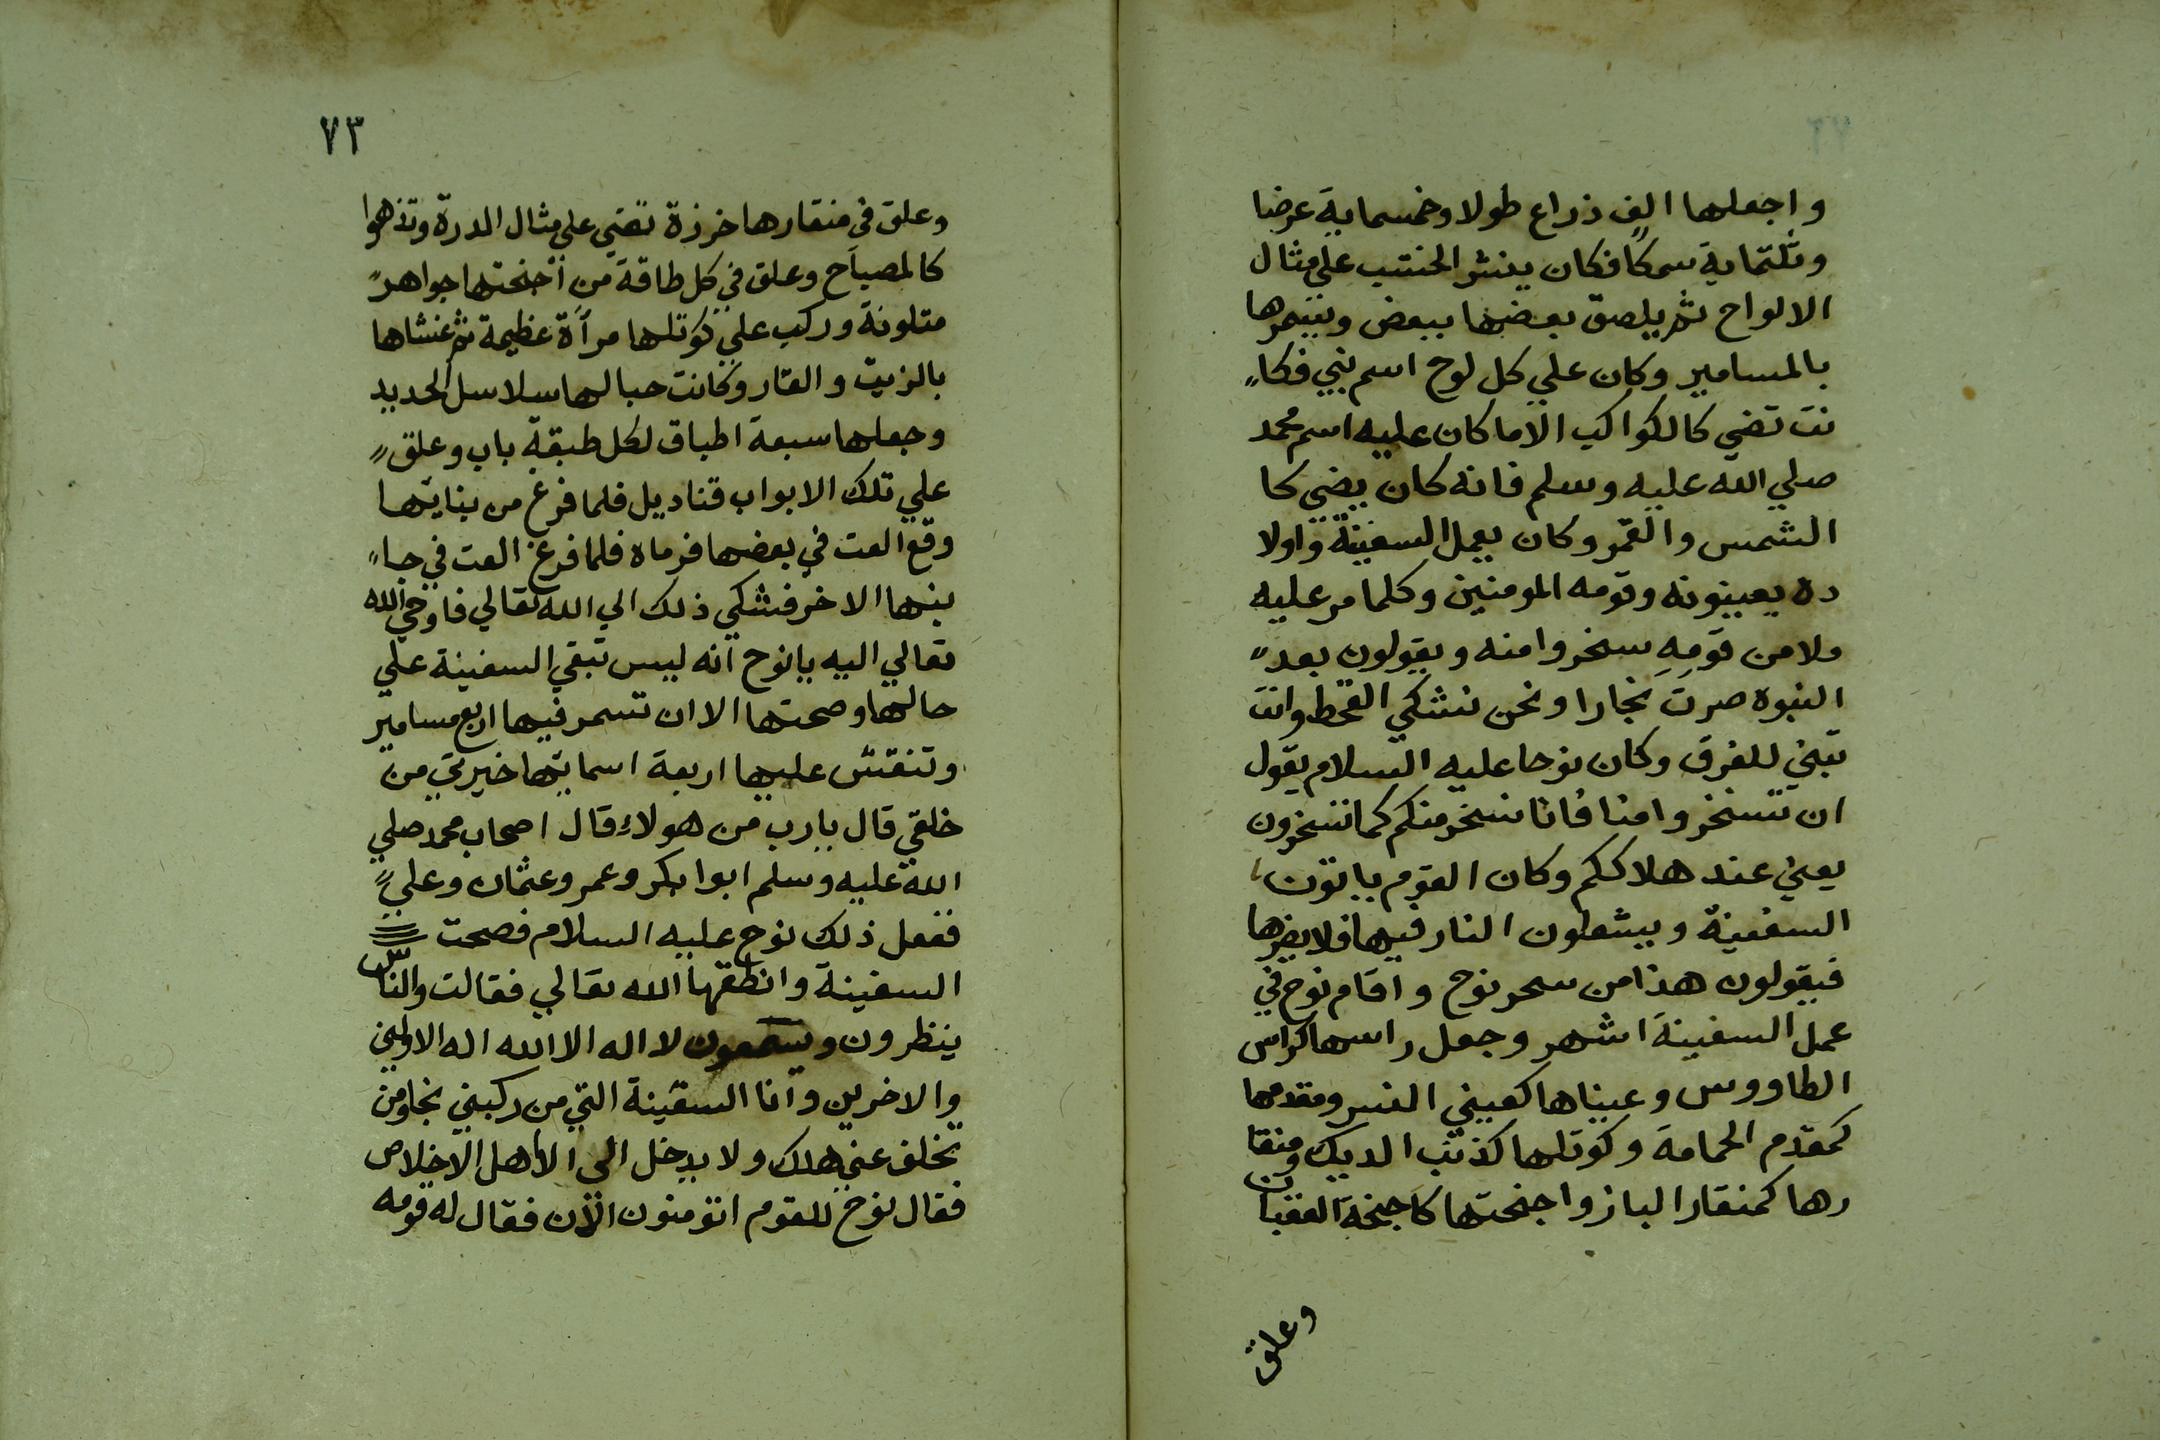 واجعلها الف ذراع طولا وخمسماية عرضا
وثلثماية سمكا فكان ينشر الخشب علي مثال
الالواح ثم يلصق بعضها ببعض ويسمرها
بالمسامير وكان علي كل لوح اسم نبي فكا
نت تضي كالكواكب الا ما كان عليه اسم محمد
صلي الله عليه وسلم فانه كان يضي كا
الشمس والقمر وكان يعمل السفينة واولا
ده يعينونه وقومه المومنين وكلما مر عليه
ملا من قومه سخروا منه ويقولون بعد
النبوه صرت نجارا ونحن نشكي القحط وانت
تبني للغرق وكان نوحا عليه السلام يقول
ان تسخروا منا فانا نسخر منكم كما تسخرون
يعني عند هلاككم وكان القوم ياتون
السفينة ويشعلون النار فيها فلا يضرها
فيقولون هذا من سحر نوح واقام نوح في
عمل السفينة اشهر وجعل راسها كراس
الطاووس وعيناها كعيني النسر ومقدمها
كمقدم الحمامة وكوثلها كذنب الديك ومنقا
رها كمنقار الباز واجنحتها كاجنحة العقبان
وعلق
٧٣
وعلق في منقارها خرزة تضي علي مثال الدرة وتزهوا
كالمصباح وعلق في كل طاقة من اجنحتها جواهر
متلونة وركب علي كوثلها مرآة عظيمة ثم غشاها
بالزيت والقار وكانت حبالها سلاسل الحديد
وجعلها سبعة اطباق لكل طبقة باب وعلق
علي تلك الابواب قناديل فلما فرغ من بنايتها
وقع العت في بعضها فرماه فلما فرغ العت في جا
نبها الاخر فشكي ذلك الي الله تعالي فاوحي الله
تعالي اليه يا نوح انه ليس تبقي السفينة علي
حالها وصحتها الا ان تسمر فيها اربع مسامير
وتنقش عليها اربعة اسمايتها خيرتي من
خلقي قال يا رب من هولاء قال اصحاب محمد صلي
الله عليه وسلم ابوا بكر وعمر وعثمان وعلي
ففعل ذلك نوح عليه السلام فصحت
السفينة وانطقها الله تعالي فقالت والناس
ينظرون ويسمعون لا اله الا الله اله الاولين
والاخرين وانا السفينة التي من ركبني نجا ومن
تخلف عني هلك ولا يدخل الي الا اهل الاخلاص
فقال نوح للقوم اتومنون الان فقال له قومه